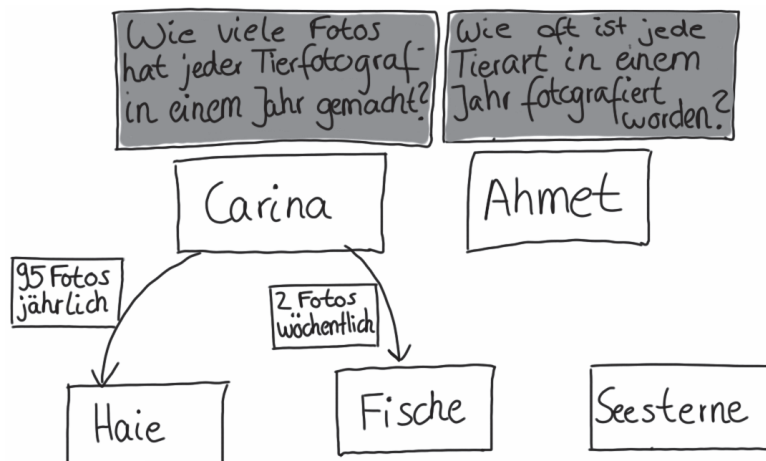 Wie viele Fotos
hat jeder Tierfotograf
in einem Jahr gemacht?
Wie oft ist jede
Tierart in einem
Jahr fotografiert
worden?
Carina
Ahmet
95 Fotos
jährlich
2 Fotos
wöchentlich
Haie
Fische
Seesterne